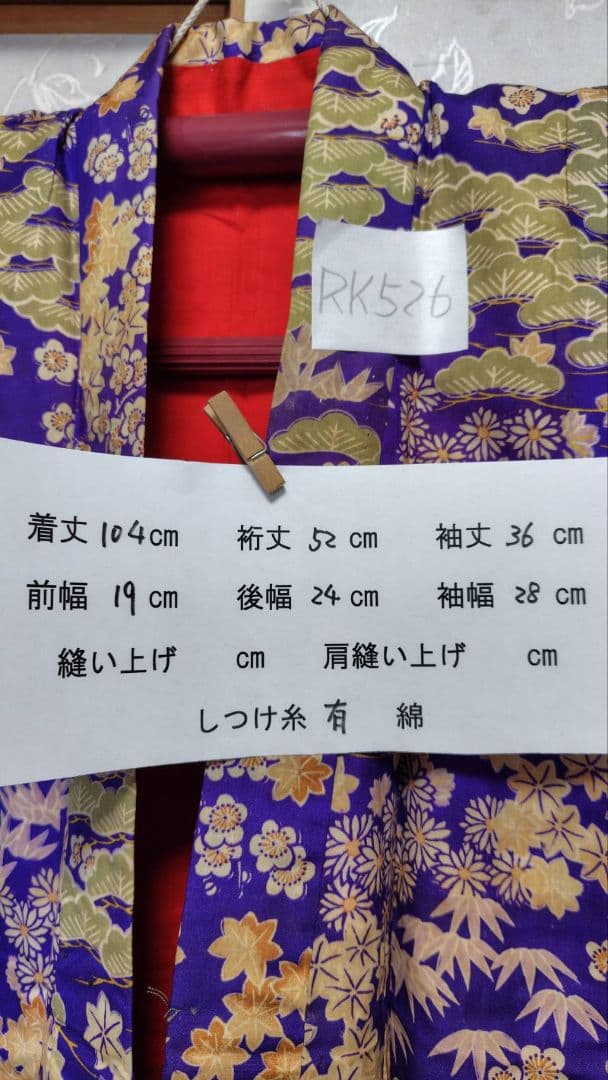 RK526
着丈 104cm 裄丈 52cm 袖丈 36cm
前幅 19cm 後幅 24cm 袖幅 28cm
縫い上げ cm 肩縫い上げ cm
しつけ糸 有 綿